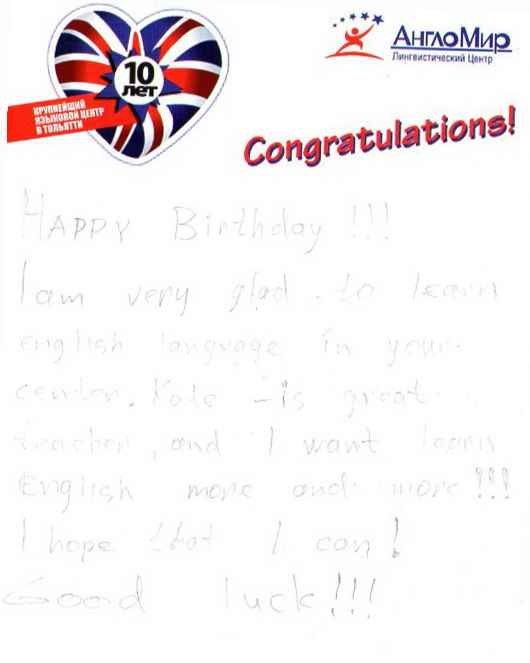 10
ЛЕТ
КРУПНЕЙШИЙ
ЯЗЫКОВОЙ ЦЕНТР
В ТОЛЬЯТТИ
АнглоМир
Лингвистический Центр
Congratulations!
HAPPY Birthday !!!
I am very glad to learn
english language in your
center. Kate - is great
teacher, and I want learn
English more and more!!!
I hope that I can!
Good luck!!!